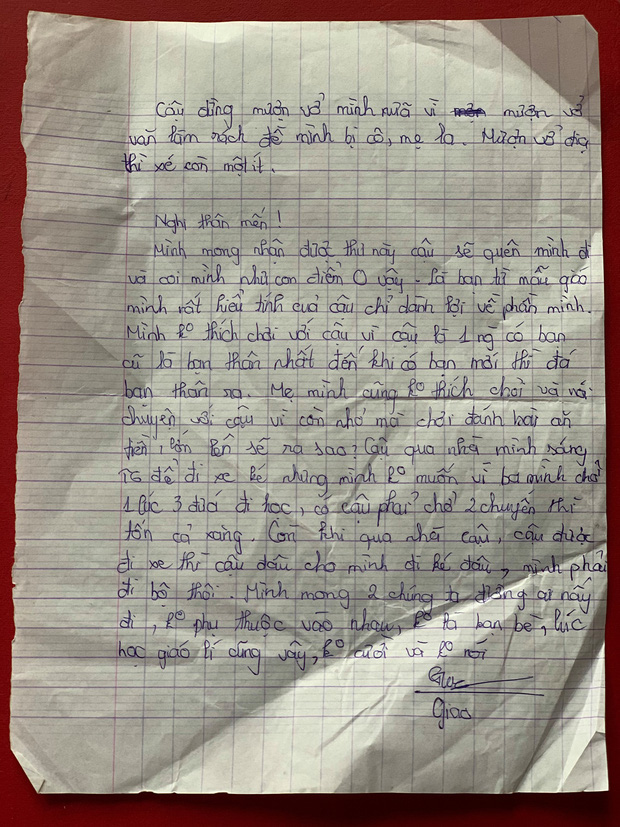 Cậu đừng mượn vở mình nữa vì mượn vở
văn làm rách để mình bị cô, mẹ la. Mượn vở địa
thì xé còn một ít.
Nghi thân mến!
Mình mong nhận được thư này cậu sẽ quên mình đi
và coi mình như con điểm 0 vậy. Là bạn từ mẫu giáo
mình rất hiểu tính cuả cậu chỉ dành lợi về phần mình.
Mình ko thích chơi với cậu vì cậu là 1 ng có bạn
cũ là bạn thân nhất đến khi có bạn mới thì đá
bạn thân ra. Mẹ mình cũng ko thích chơi và nói
chuyện với cậu vì còn nhỏ mà chơi đánh bài ăn
tiền, lớn lên sẽ ra sao? Cậu qua nhà mình sáng
để đi xe ké nhưng mình ko muốn vì ba mình chở
1 lúc 3 đứa đi học, có cậu phải chở 2 chuyến thì
tốn cả xăng. Còn khi qua nhà cậu, cậu được
đi xe thì cậu đâu cho mình đi ké đâu, mình phải
đi bộ thôi. Mình mong 2 chúng ta đường ai nấy
đi, ko phụ thuộc vào nhau, ko là bạn bè, lúc
học giáo lí cũng vậy, ko cười và ko nói
Giao